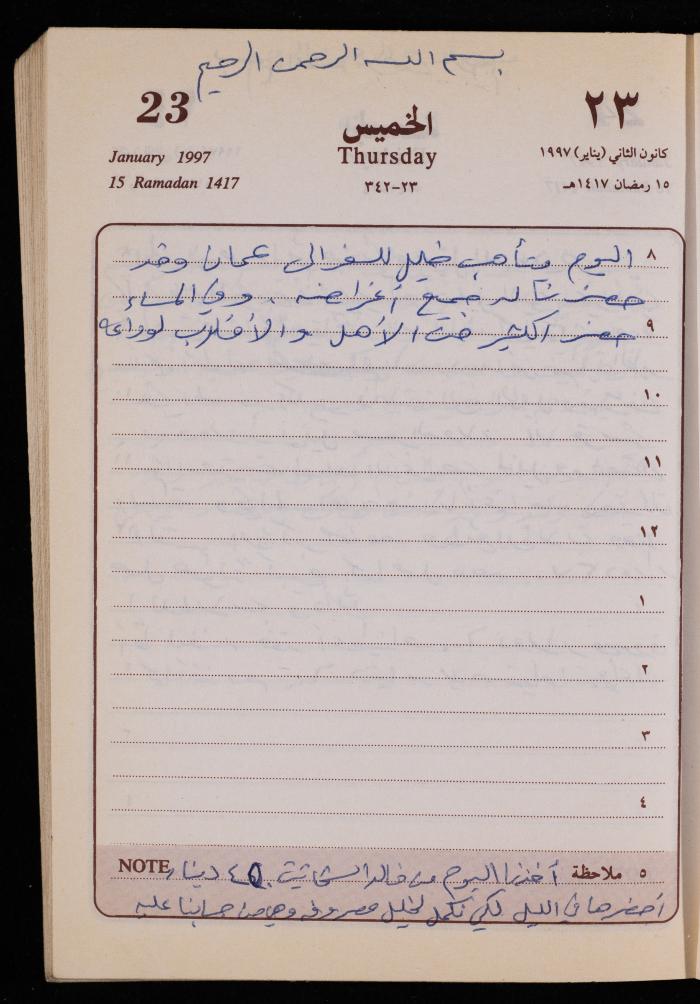 بسم الله الرحمن الرحيم
23
الخميس
٢٣
January 1997
Thursday
كانون الثاني (يناير) ١٩٩٧
15 Ramadan 1417
٢٣-٣٤٢
١٥ رمضان ١٤١٧هـ
٨ اليوم يتأهب خليل للسفر الى عمان وقد
حضرنا له جميع أغراضه. وفي المساء
٩ حضر الكثير من الأهل والأقارب لوداعه
١٠
١١
١٢
١
٢
٣
٤
NOTE ٥ ملاحظة أخذنا اليوم من خالد دينار
احضرها في الليل لكي نكمل لخليل مصروفه وهي من حسابنا عليه